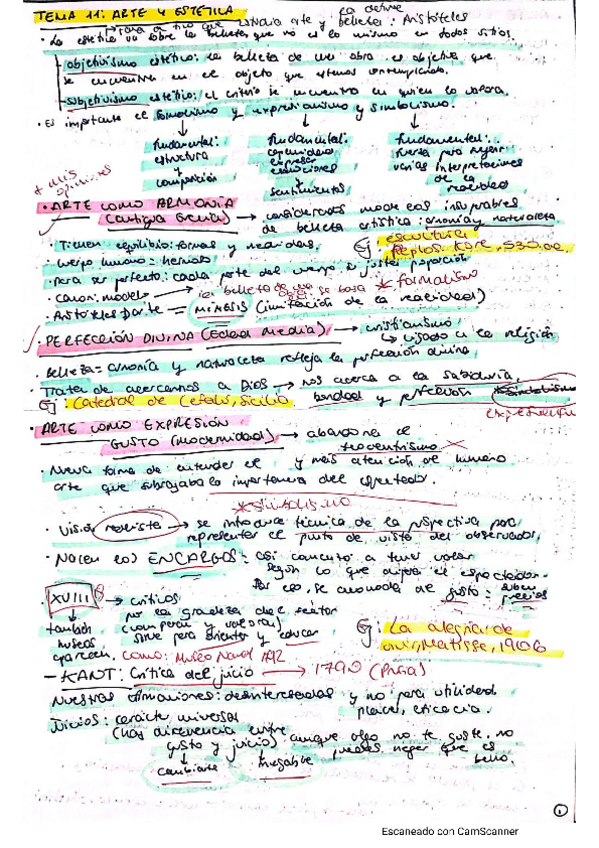 TEMA 11: ARTE Y ESTÉTICA
la define
estudia arte y belleza: Aristóteles
· La estética va sobre la belleza, que no es lo mismo en todos sitios.
objetivismo estético: la belleza de una obra es objetiva que
se encuentra en el objeto que estamos contemplando.
subjetivismo estético: el criterio se encuentra en quien lo valora.
· Es importante el formalismo y expresionismo y simbolismo.
fundamental: estructura y composición
fundamental: expresar emociones + sentimientos
fundamental: varias interpretaciones de la realidad
+ mis opiniones
· ARTE COMO ARMONÍA
(antigua Grecia) → considerados modelos insuperables
de belleza artística: armonía y naturaleza
· Tienen equilibrio: formas y medidas.
Ej: escultura Peplos Kore, 530 a.c.
· cuerpo humano = hermoso
· para ser perfecto: cada parte del cuerpo es justa proporción
· canon: modelo → la belleza de una obra se basa * formalismo
· Aristóteles parte = MÍMESIS (imitación de la realidad)
· PERFECCIÓN DIVINA (Edad Media) → cristianismo
↳ usado a la religión
· Belleza = armonía y naturaleza refleja la perfección divina
· Trata de acercarnos a Dios → nos acerca a la sabiduría,
Ej: Catedral de Cefalú, Sicilia bondad y perfección
· ARTE COMO EXPRESIÓN
GUSTO (modernidad) → abandona el
teocentrismo
· Nueva forma de entender el y más atención al humano
arte que subrayaba la importancia del espectador.
* simbolismo
· Visión realista → se introduce técnica de la perspectiva para
representar el punto de vista del observador.
· Nacen los ENCARGOS: así comenzó a tener valor
según lo que diga el espectador.
Por eso, se acomoda al gusto: suben precios
· XVIII → críticos
por la grandeza del sector
(comparan y valoran)
sirve para orientar y educar
también museos aparecen, como: Museo Naval 1792
Ej: La alegría de vivir, Matisse, 1906
- KANT: Crítica del juicio → 1790 (Prusia)
Nuestras afirmaciones: desinteresadas y no para utilidad,
placer, eficacia.
Juicios: carácter universal
(hay diferencia entre
gusto y juicio) aunque algo no te guste, no
puedes negar que es
bello.
cambiante
innegable
1
Escaneado con CamScanner